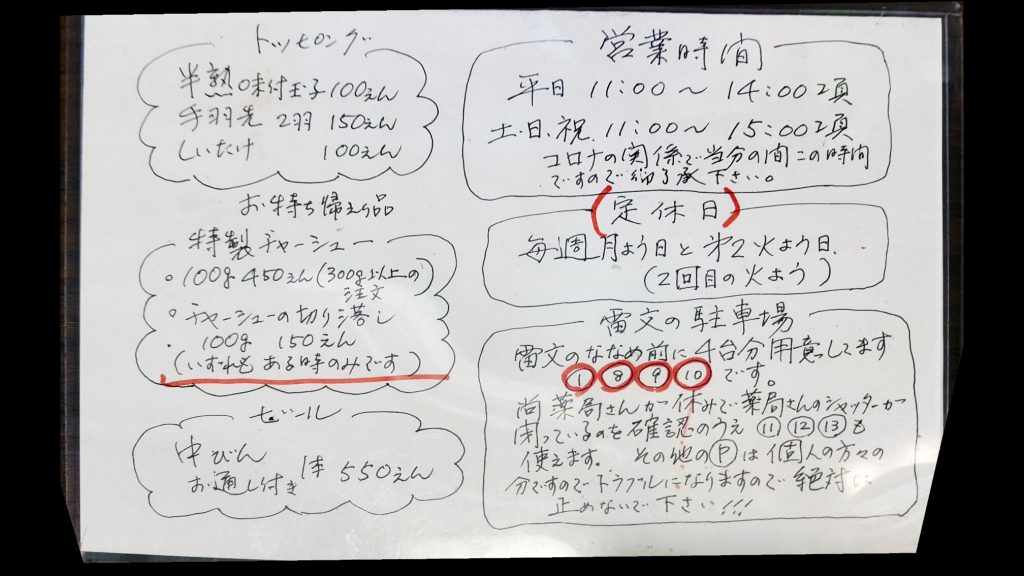 トッピング
半熟味付玉子100えん
手羽先 2羽 150えん
しいたけ 100えん
お持ち帰えり品
特製チャーシュー
○100g 450えん(300g以上の注文)
○チャーシューの切り落し
100g 150えん
(いずれも ある時のみです)
ビール
中びん
お通し付き 1本 550えん
営業時間
平日 11:00〜14:00頃
土.日.祝.11:00〜15:00頃
コロナの関係で当分の間この時間
ですので御了承下さい。
(定休日)
毎週月よう日と第2火よう日
(2回目の火よう)
雷文の駐車場
雷文のななめ前に4台分用意してます
①⑧⑨⑩です。
尚薬局さんが休みで薬局さんのシャッターが
閉っているのを確認のうえ⑪⑫⑬も
使えます。その他のⓅは個人の方々の
分ですのでトラブルになりますので絶対に
止めないで下さい!!!